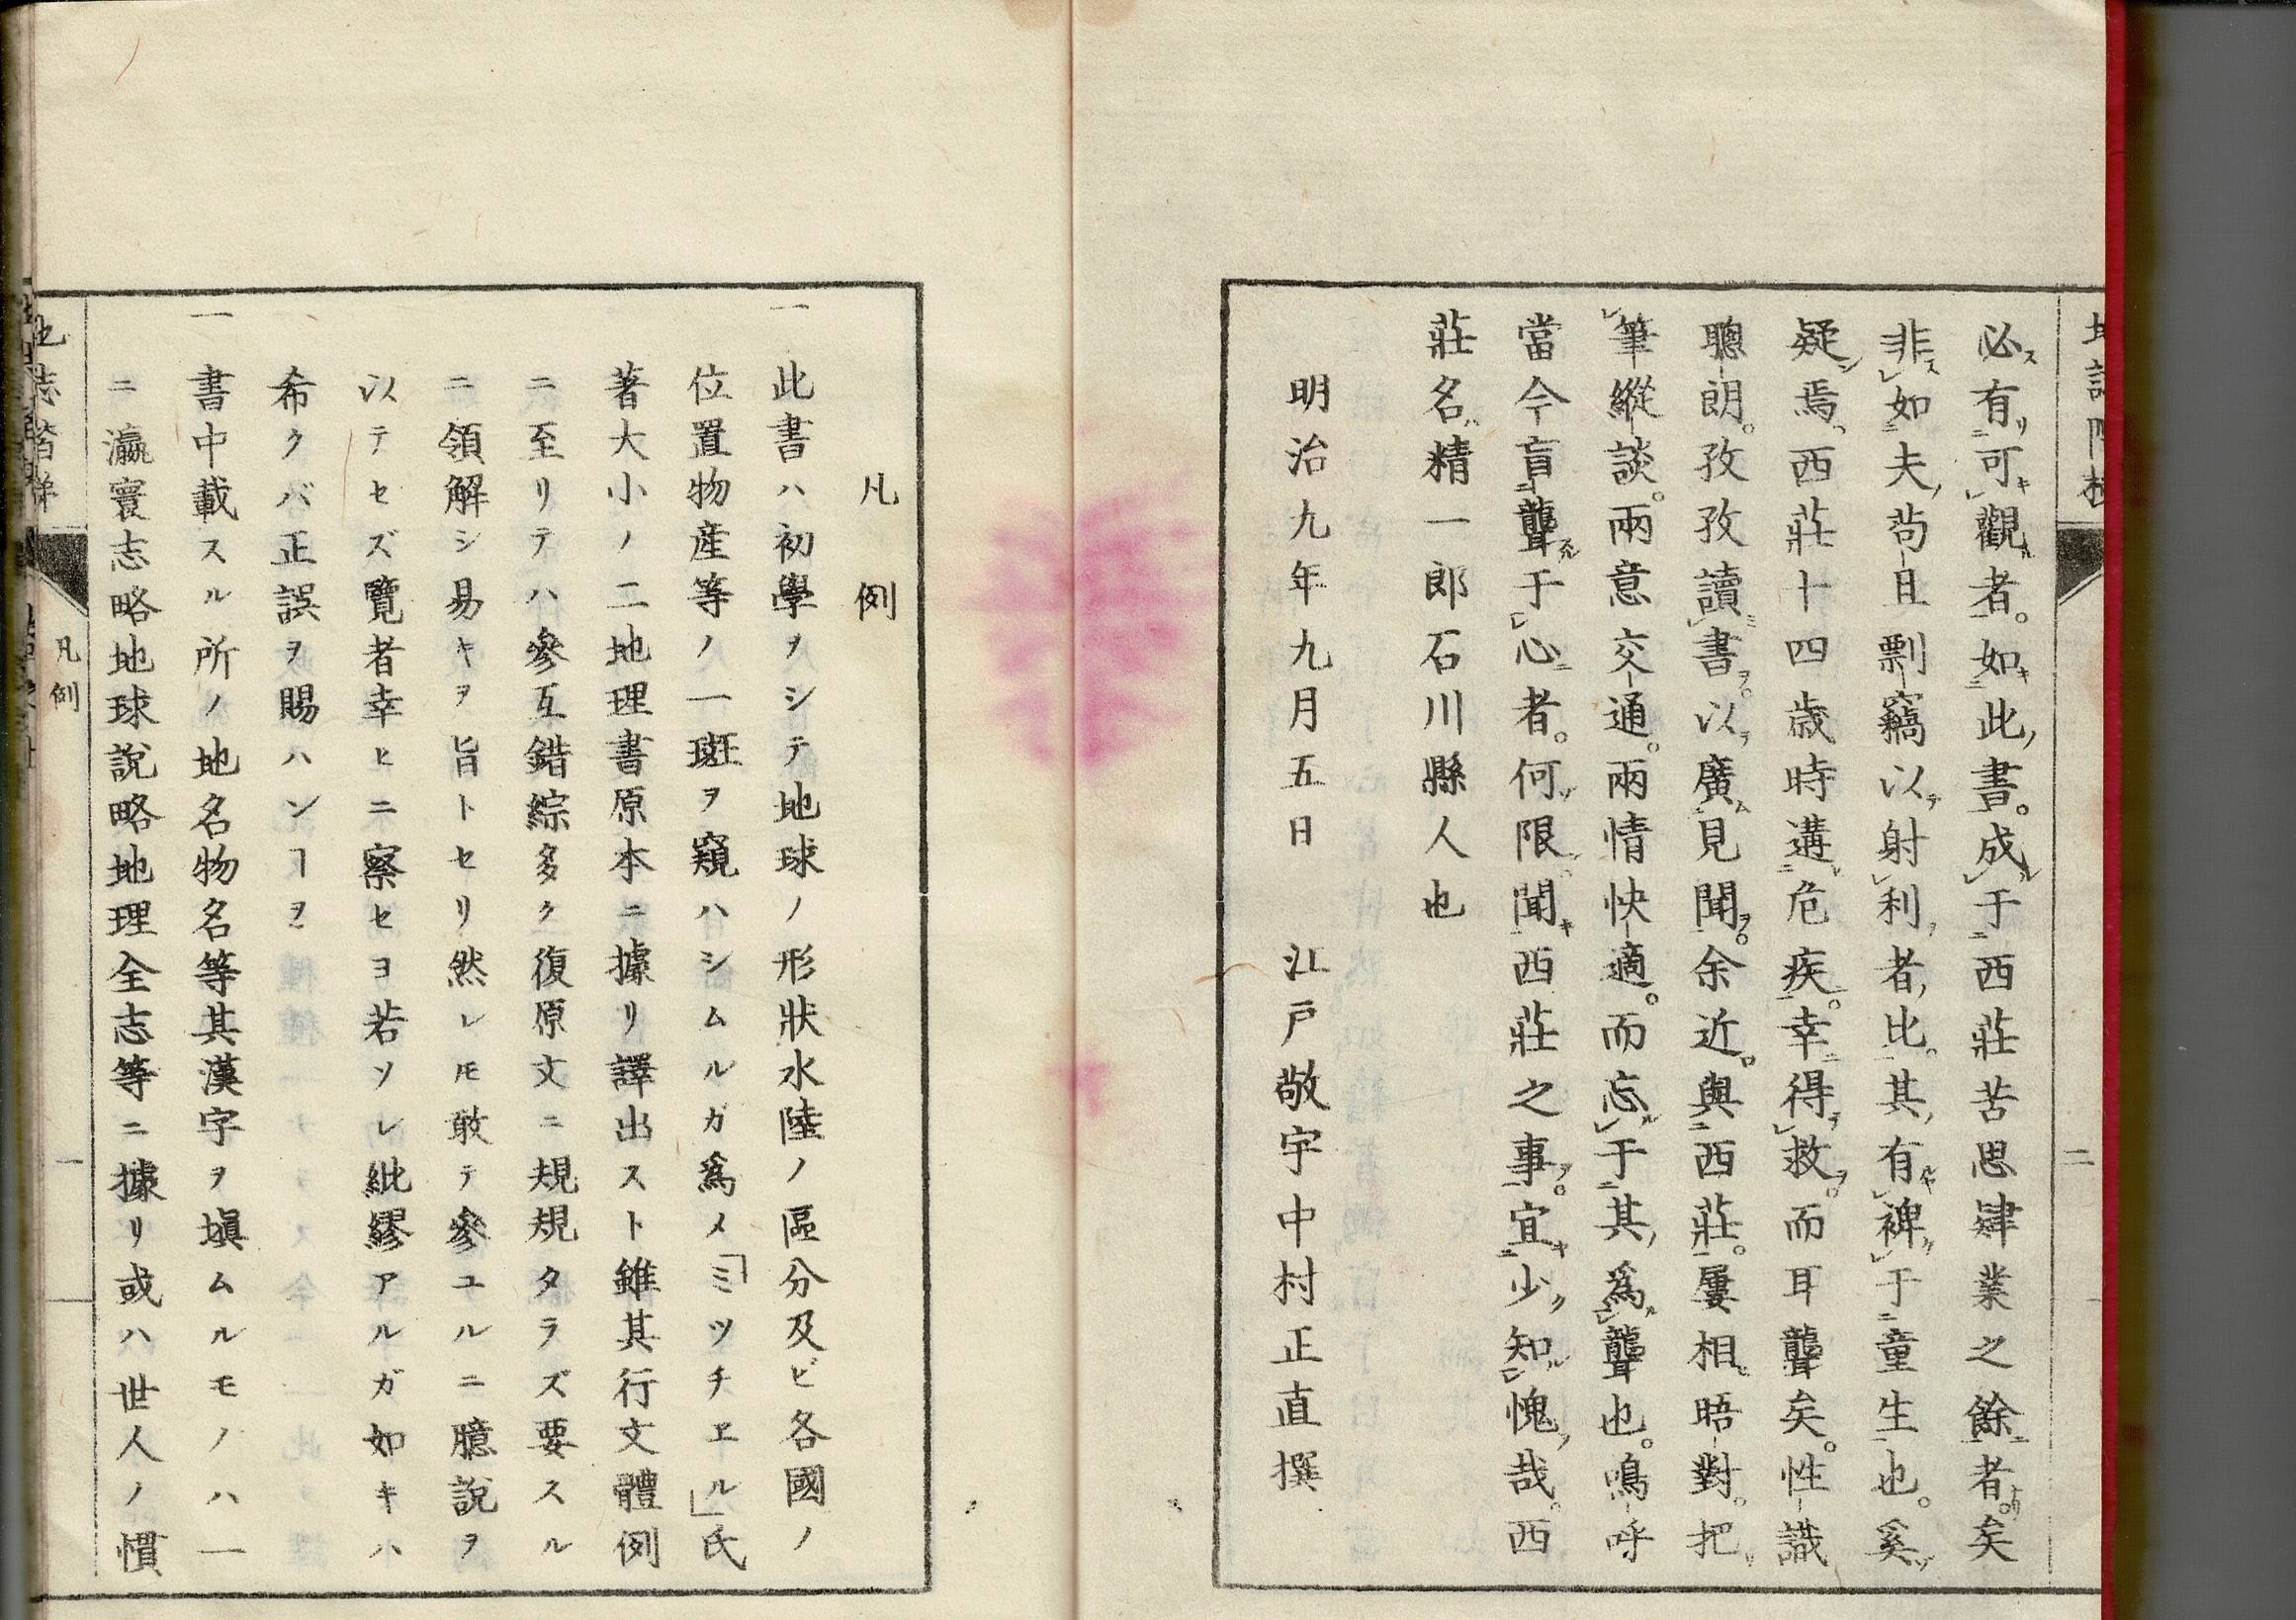 必有可觀者。如此書。成于西莊苦思肄業之餘者。矣
非如夫苟且剽竊以射利者比。其有裨于童生也。奚
疑焉。西莊十四歳時遘危疾。幸得救。而耳聾矣。性識
聰朗。孜孜讀書。以廣見聞。余近。與西莊。屢相晤對。把
筆縱談。兩意交通。兩情快適。而忘于其爲聾也。鳴呼
當今盲聾于心者。何限。聞西莊之事。宜少知愧哉。西
莊名精一郎石川縣人也
明治九年九月五日　江戸敬宇中村正直撰
二
凡例
一此書ハ初學ヲシテ地球ノ形狀水陸ノ區分及ビ各國ノ
位置物産等ノ一斑ヲ窺ハシムルガ爲メ「ミッチエール」氏
著大小ノ二地理書原本ニ據リ譯出スト雖其行文體例
ニ至リテハ參互錯綜多ク復原文ニ規規タラズ要スル
ニ領解シ易キヲ旨トセリ然レ𪜈敢テ參ユルニ臆說ヲ
以テセズ覽者幸ヒニ察セヨ若ソレ紕繆アルガ如キハ
希クバ正誤ヲ賜ハンヿヲ
一書中載スル所ノ地名物名等其漢字ヲ塡ムルモノハ一
ニ瀛寰志略地球說略地理全志等ニ據リ或ハ世人ノ慣
凡例
一